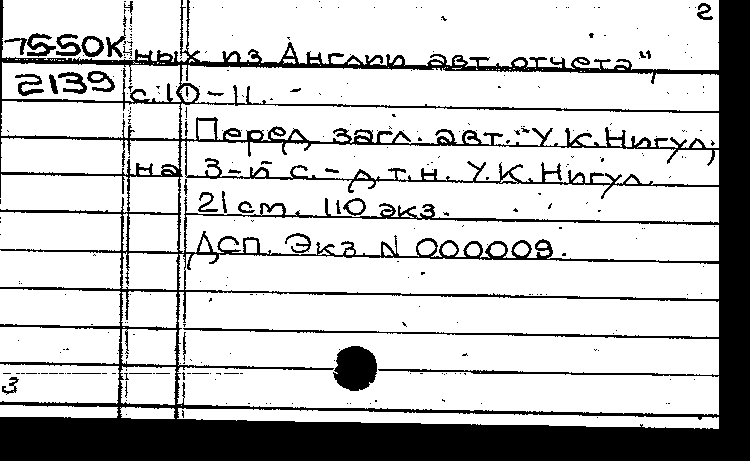 2
75-50К ных из Англии авт. отчета",
2139 с. 10-11.
Перед загл. авт.: У.К.Нигул;
на 3-й с. - д.т.н. У.К.Нигул.
21 cm. 110 экз.
ДСП. Экз. N 000009.
3